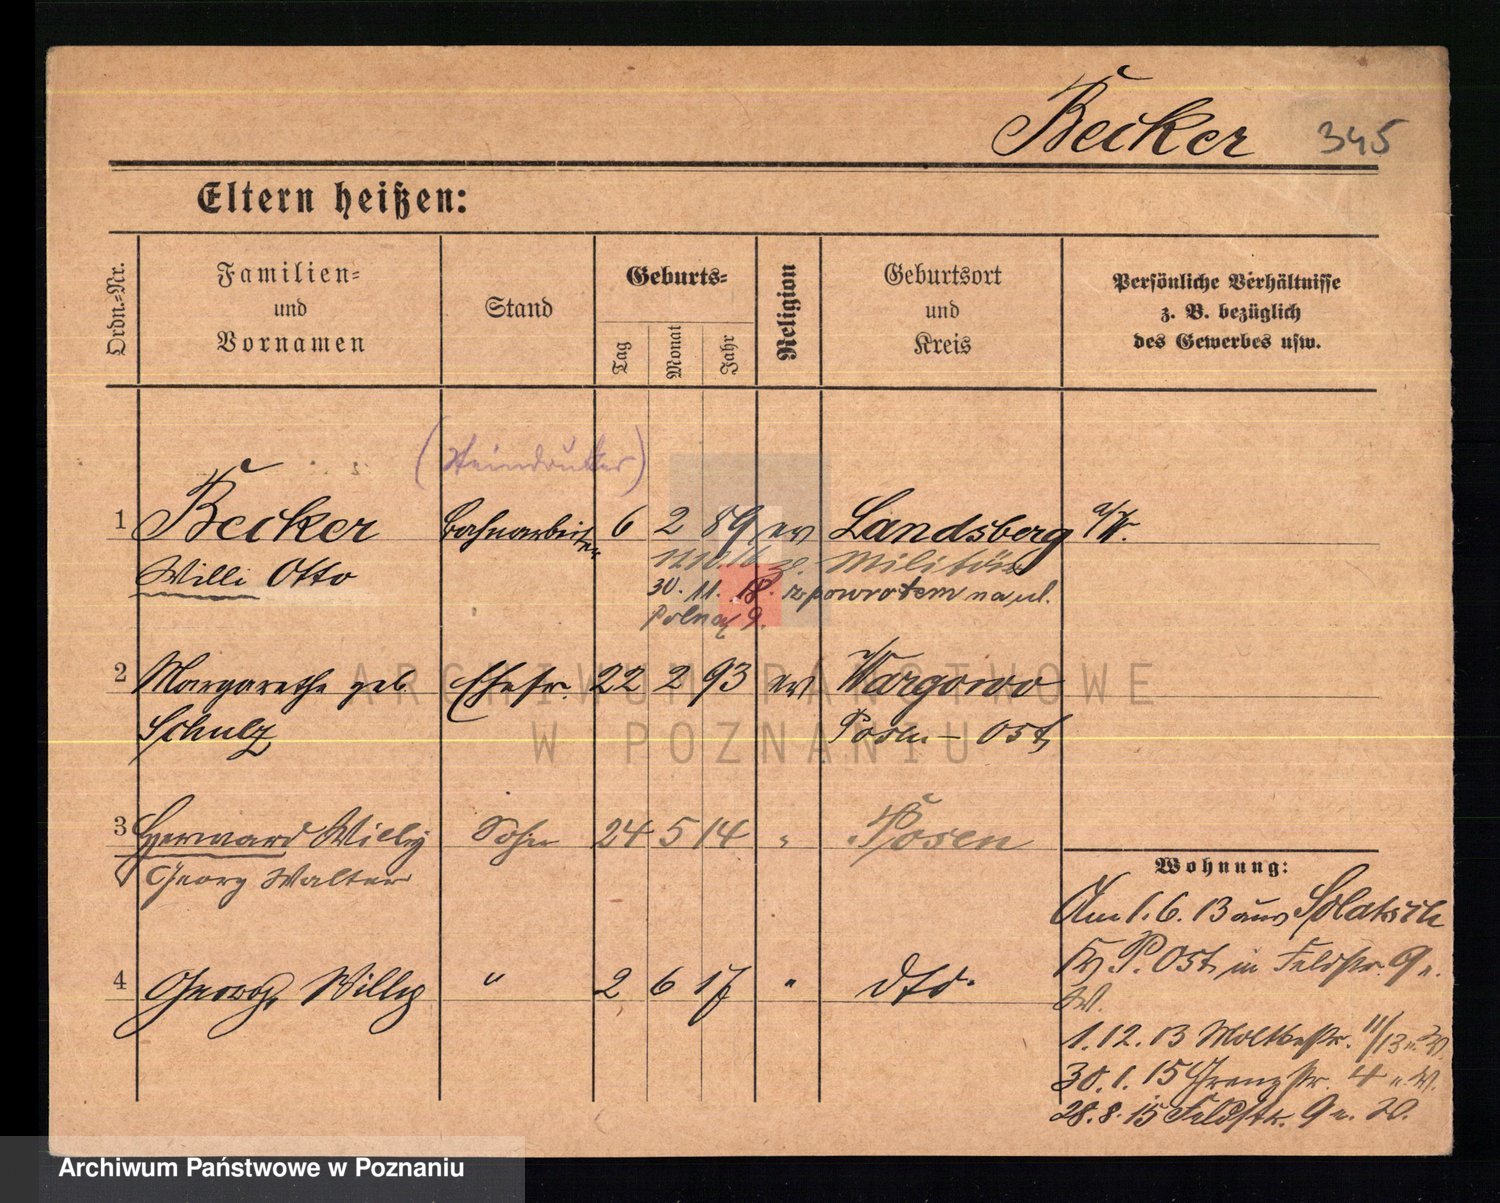 Becker 345
Eltern heißen:
Ordn.=Nr.
Familien=
und
Vornamen
Stand
Geburts=
Tag
Monat
Jahr
Religion
Geburtsort
und
Kreis
Persönliche Verhältnisse
z. B. bezüglich
des Gewerbes usw.
(Steindrucker)
1 Becker Bahnarbeiter 6 2 89 ev Landsberg a/W.
Willi Otto
z. Militär
30. 11. 18. z powrotem na ul.
Polnej 9.
2 Margarethe geb. Ehefr. 22 2 93 ev Wargowo
Schulz Posen - Ost
3 Herward Willy Sohn 24 5 14 " Posen
Georg Walter
4 Georg Willy " 2 6 17 " dto.
Wohnung:
Am 1. 6. 13 aus Solatsch
Kr. P. Ost in Feldstr. 9 n.
W.
1. 12. 13 Moltkestr. 11/13 n. W.
30. 1. 15 Grenzstr. 4 n. W.
28. 8. 15 Feldstr. 9 n. W.
ARCHIWUM PAŃSTWOWE
W POZNANIU
Archiwum Państwowe w Poznaniu